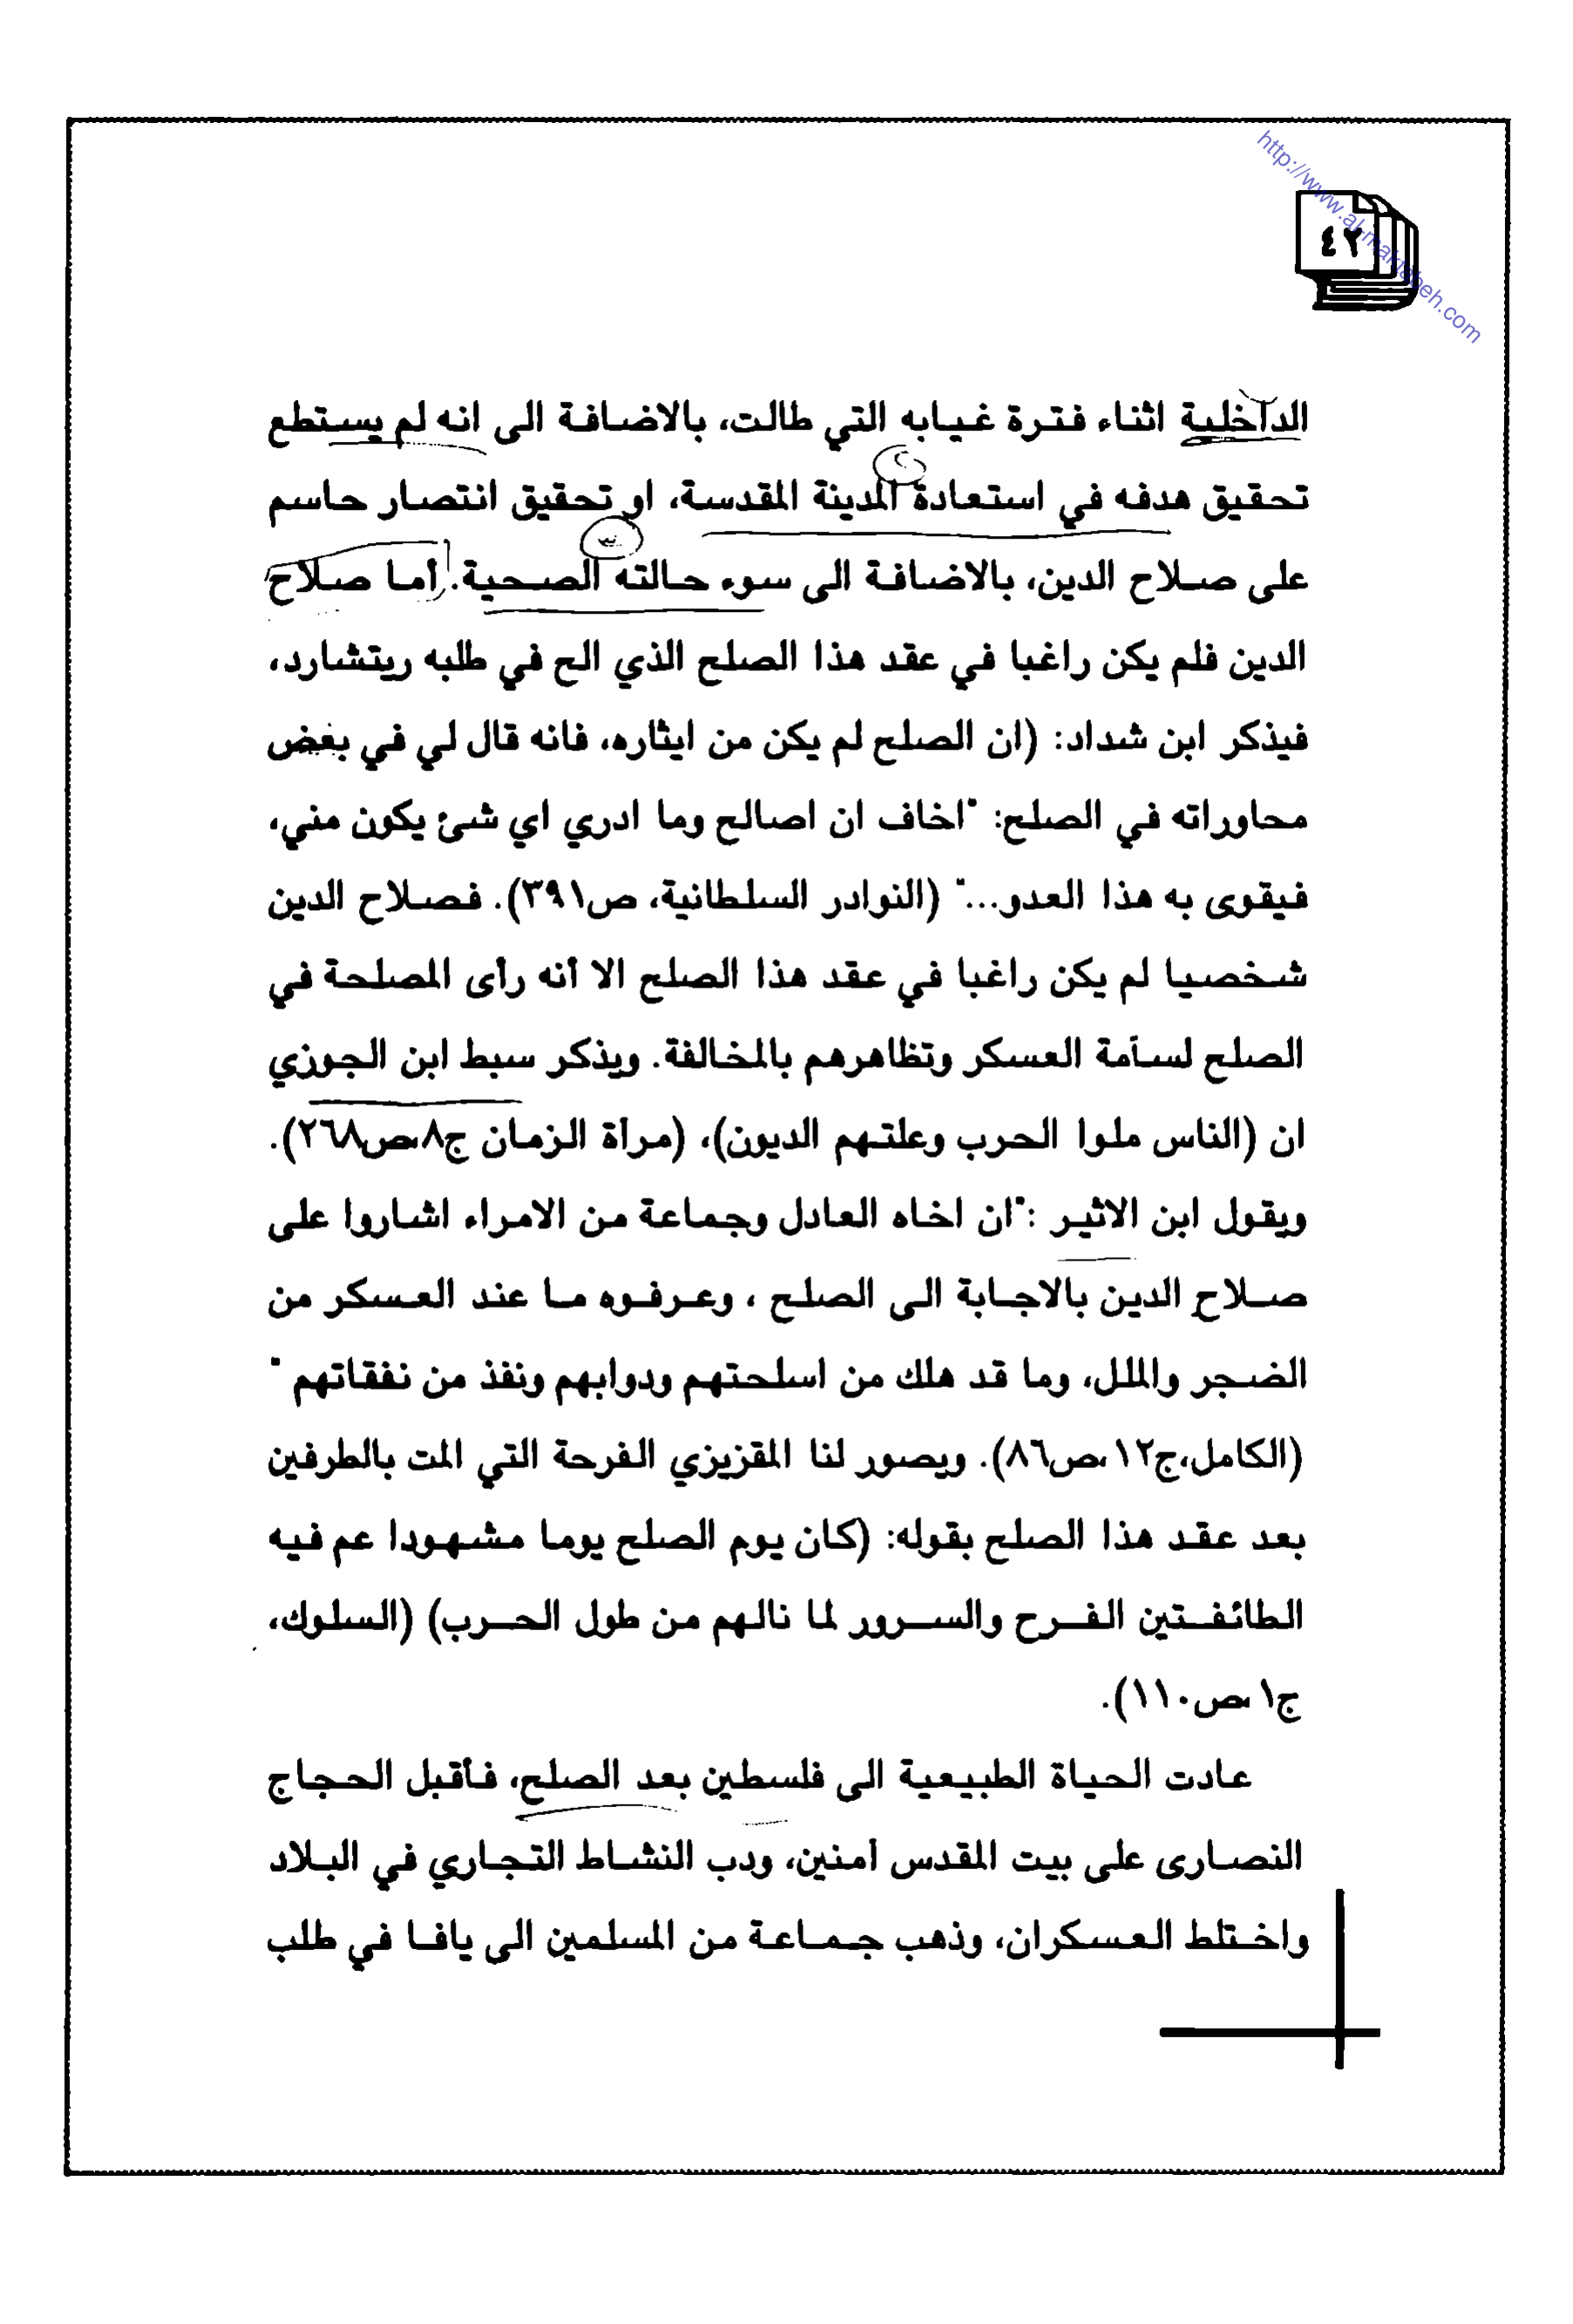 http://www.al-maktabeh.com
٤٢
الداخلية اثناء فترة غيابه التي طالت، بالاضافة الى انه لم يستطع
تحقيق هدفه في استعادة المدينة المقدسة، او تحقيق انتصار حاسم
على صلاح الدين، بالاضافة الى سوء حالته الصحية. أما صلاح
الدين فلم يكن راغبا في عقد هذا الصلح الذي الح في طلبه ريتشارد،
فيذكر ابن شداد: (ان الصلح لم يكن من ايثاره، فانه قال لي في بعض
محاوراته في الصلح: "اخاف ان اصالح وما ادري اي شئ يكون مني،
فيقوى به هذا العدو..." (النوادر السلطانية، ص٣٩١). فصلاح الدين
شخصيا لم يكن راغبا في عقد هذا الصلح الا أنه رأى المصلحة في
الصلح لسآمة العسكر وتظاهرهم بالمخالفة. ويذكر سبط ابن الجوزي
ان (الناس ملوا الحرب وعلتهم الديون)، (مرآة الزمان ج٨،ص٢٦٨).
ويقول ابن الاثير :"ان اخاه العادل وجماعة من الامراء اشاروا على
صلاح الدين بالاجابة الى الصلح ، وعرفوه ما عند العسكر من
الضجر والملل، وما قد هلك من اسلحتهم ودوابهم ونفذ من نفقاتهم "
(الكامل،ج١٢،ص٨٦). ويصور لنا المقزيزي الفرحة التي المت بالطرفين
بعد عقد هذا الصلح بقوله: (كان يوم الصلح يوما مشهودا عم فيه
الطائفتين الفرح والسرور لما نالهم من طول الحرب) (السلوك،
ج١،ص١١٠).
عادت الحياة الطبيعية الى فلسطين بعد الصلح، فأقبل الحجاج
النصارى على بيت المقدس آمنين، ودب النشاط التجاري في البلاد
واختلط العسكران، وذهب جماعة من المسلمين الى يافا في طلب